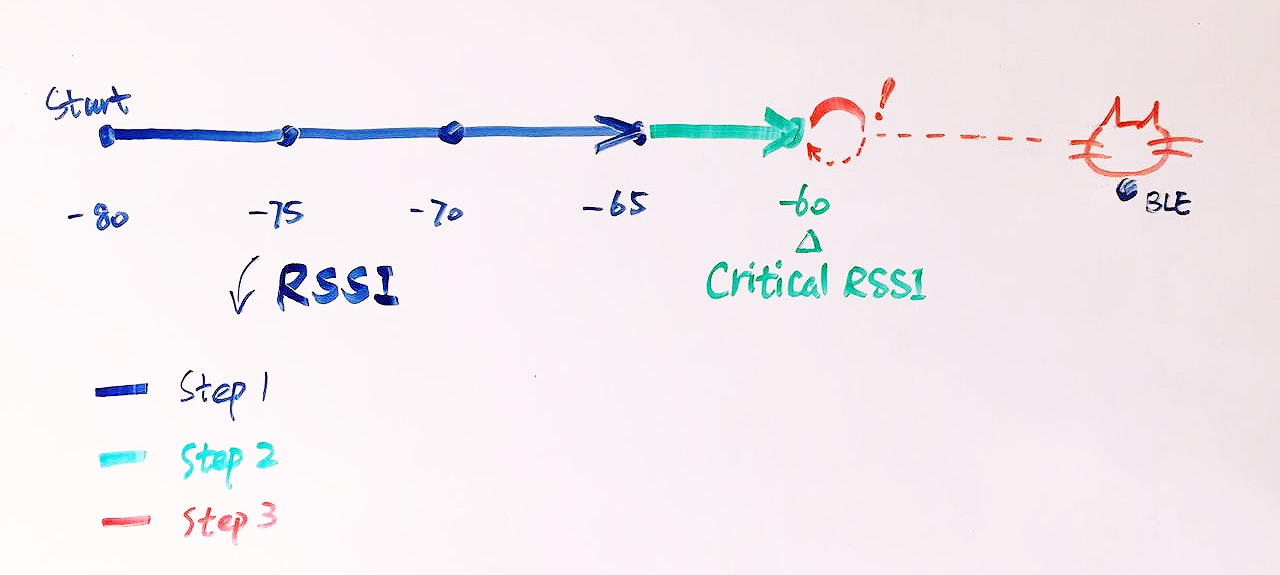 Start
!
-80 -75 -70 -65 -60
BLE
RSSI
Critical RSSI
Step 1
Step 2
Step 3